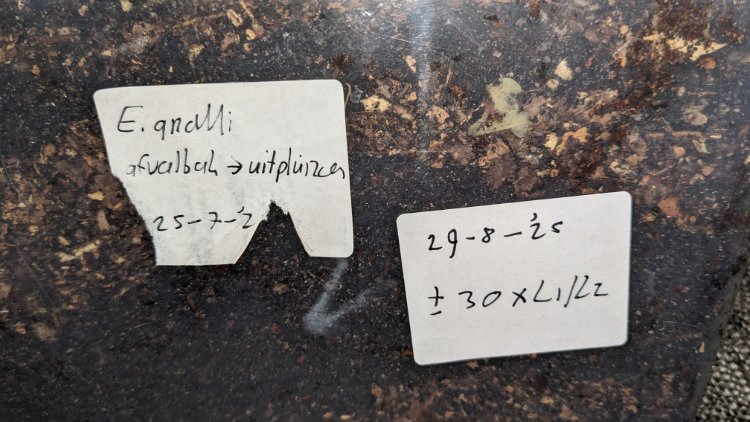 E. gnalli
afvalbak → uitpluizen
25-7-'2
29-8-'25
± 30 x L1/L2